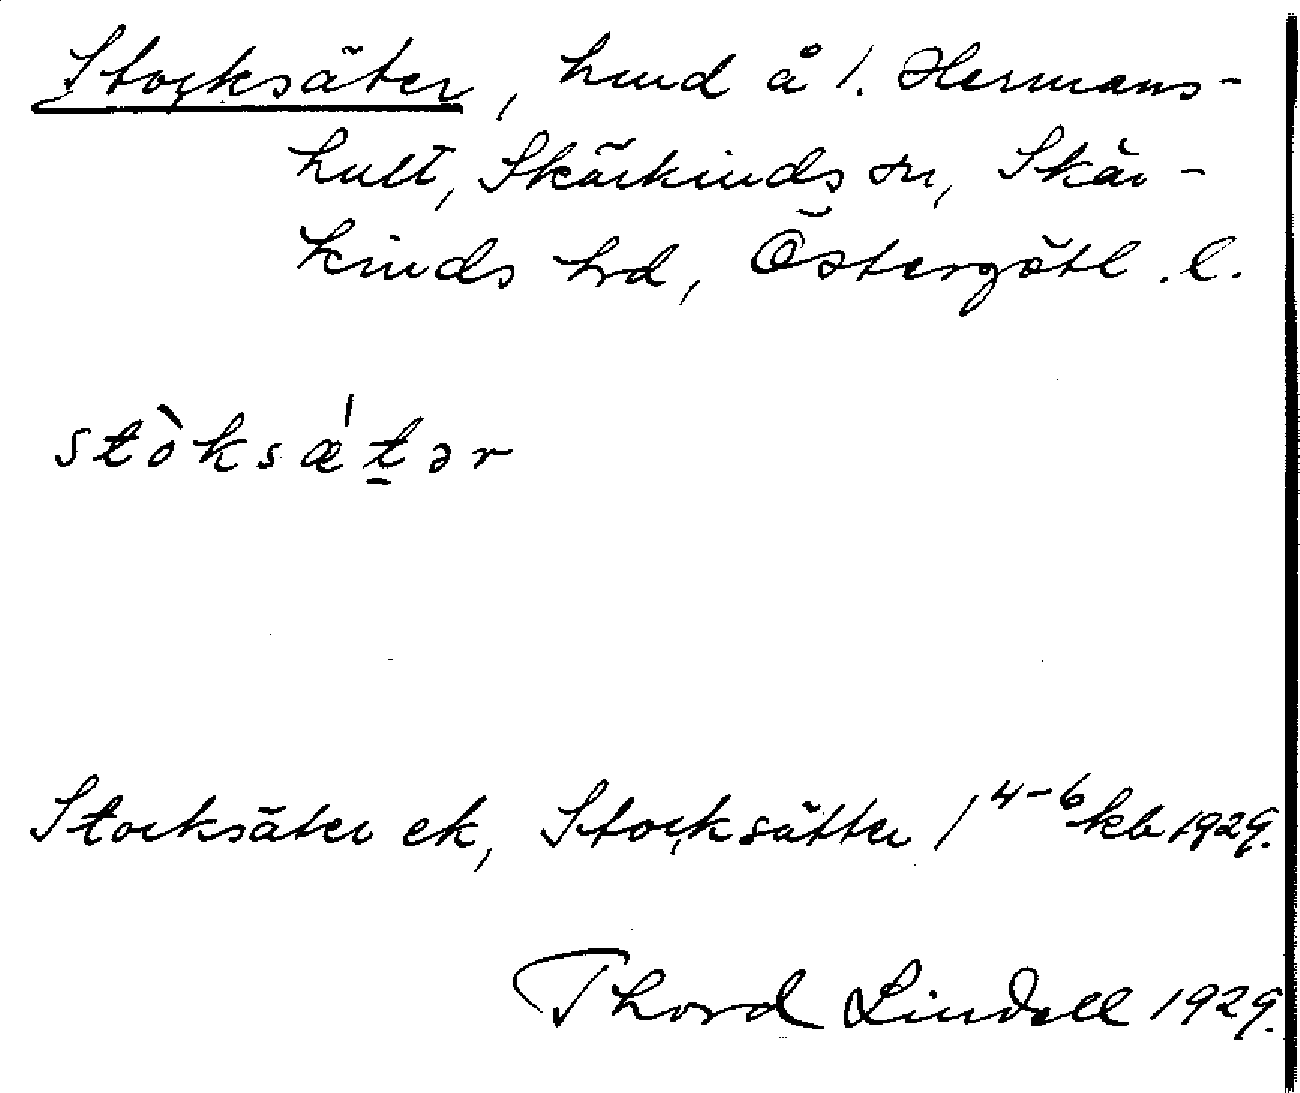 Stocksäter, lund å 1. Hermans-
hult, Skärkinds sn, Skär-
kinds hrd, Östergötl. l.
stòksǽt̲ər
Stocksäter ek, Stocksätter 1 4-6 kb 1929.
Thord Lindell 1929.